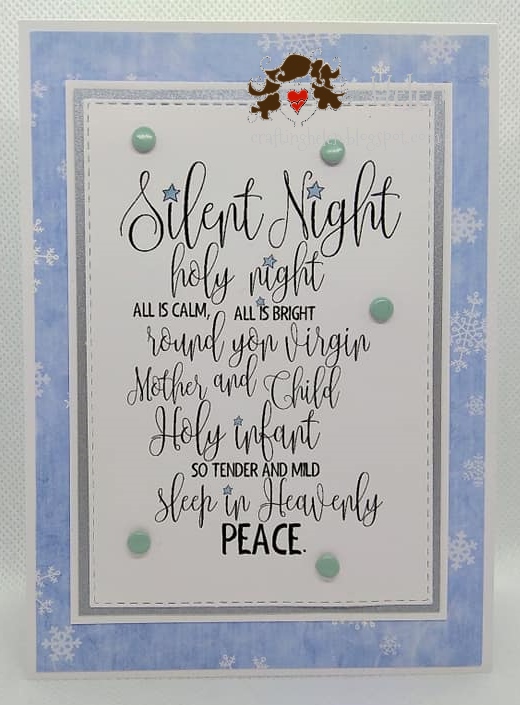 Silent Night
holy night
ALL IS CALM, ALL IS BRIGHT
round yon Virgin
Mother and Child
Holy infant
SO TENDER AND MILD
sleep in Heavenly
PEACE.